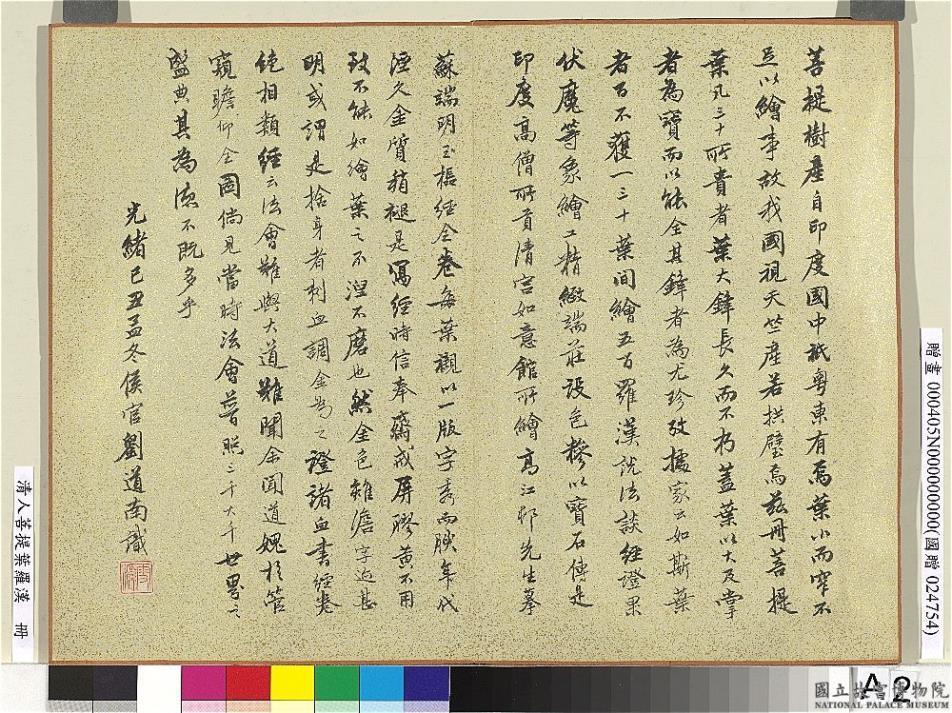 菩提樹產自印度國中祇粵東有焉葉小而窄不
足以繪事故我國視天竺產若拱璧焉茲冊菩提
葉凡三十所貴者葉大鋒長久而不朽蓋葉以大及掌
者為寶而以能全其鋒者為尤珍攷據家云如斯葉
者百不獲一三十葉間繪五百羅漢說法談經證果
伏魔等象繪工精緻端莊設色摻以寶石傳是
印度高僧所貢清宮如意館所繪高江邨先生摹
蘇端明玉樞經全卷每葉襯以一版字秀而腴年代
湮久金質稍褪是寫經時信奉齋戒屏膠黃不用
致不能如繪葉之不涅不磨也然金色雖澹字近甚
明或謂是捨身者刺血調金為之證諸血書經卷
絕相類經云法會難與大道難聞余聞道媿於管
窺瞻仰全圖倘見當時法會普照三千大千世界之
盛典其為流不既多乎
光緒己丑孟冬侯官劉道南識
贈畫 000405N000000000(國贈 024754)
清人菩提葉羅漢 冊
A2
國立故宮博物院
NATIONAL PALACE MUSEUM